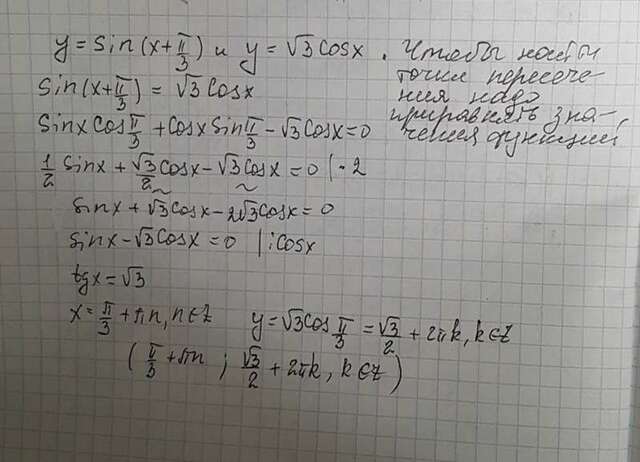 y = sin(x + π/3) и y = √3 cosx. Чтобы найти
точки пересече-
ния надо
приравнять зна-
чения функций
sin(x + π/3) = √3 cosx
sinx cos π/3 + cosx sin π/3 - √3 cosx = 0
1/2 sinx + √3/2 cosx - √3 cosx = 0 | · 2
sinx + √3 cosx - 2√3 cosx = 0
sinx - √3 cosx = 0 | : cosx
tgx = √3
x = π/3 + πn, n ∈ Z y = √3 cos π/3 = √3/2 + 2πk, k ∈ Z
(π/3 + πn ; √3/2 + 2πk, k ∈ Z)